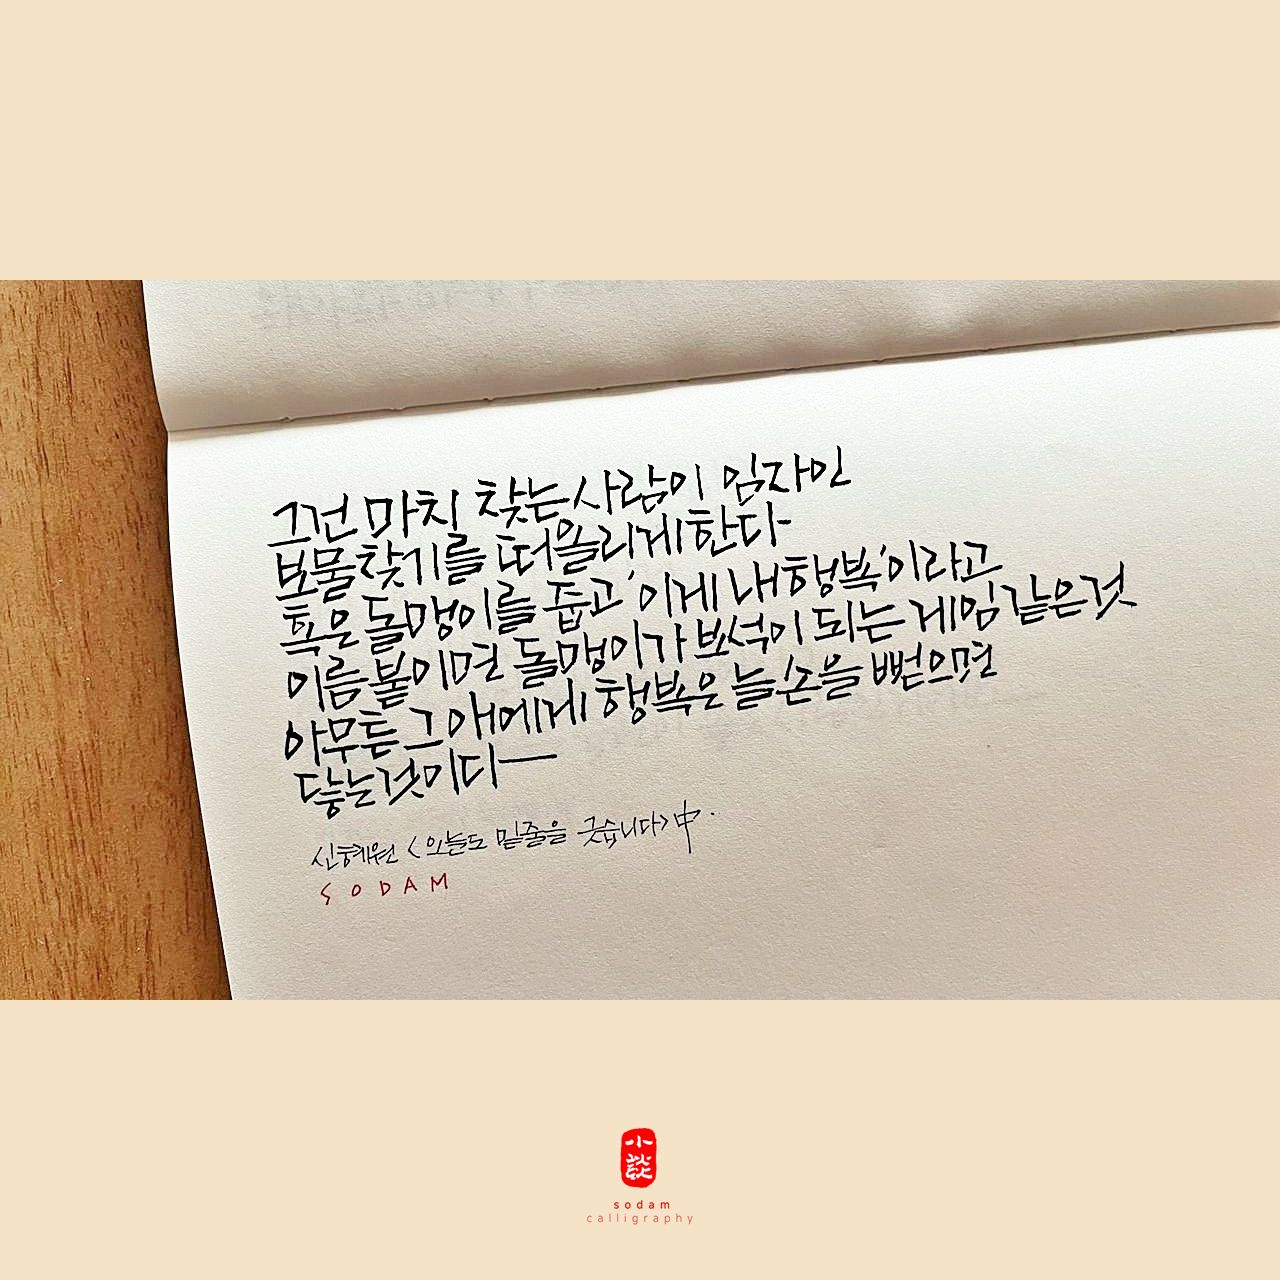 그건 마치 찾는 사람이 임자인
보물찾기를 떠올리게 한다
혹은 돌맹이를 줍고 '이게 내 행복'이라고
이름 붙이면 돌맹이가 보석이 되는 게임 같은 것
아무튼 그 애에게 행복은 늘 손을 뻗으면
닿는 것이다—
신혜원 <오늘도 밑줄을 긋습니다> 中.
SODAM
小談
sodam
calligraphy